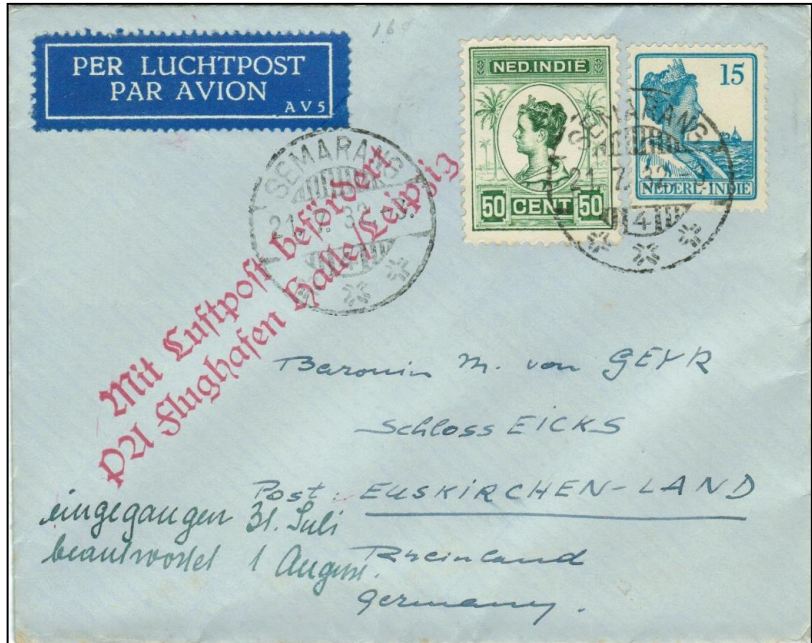 PER LUCHTPOST
PAR AVION
AV5
160
NED.INDIE
50 CENT 50
15
NEDERL-INDIE
SEMARANG
21.7.32
4
SEMARANG
21.7.32
4
Mit Luftpost befördert
PA Flughafen Halle/Leipzig
Baronin M. von GEYR
Schloss EICKS
Post: EUSKIRCHEN-LAND
Rheinland
Germany.
eingegangen 31. Juli
beantwortet 1 August.